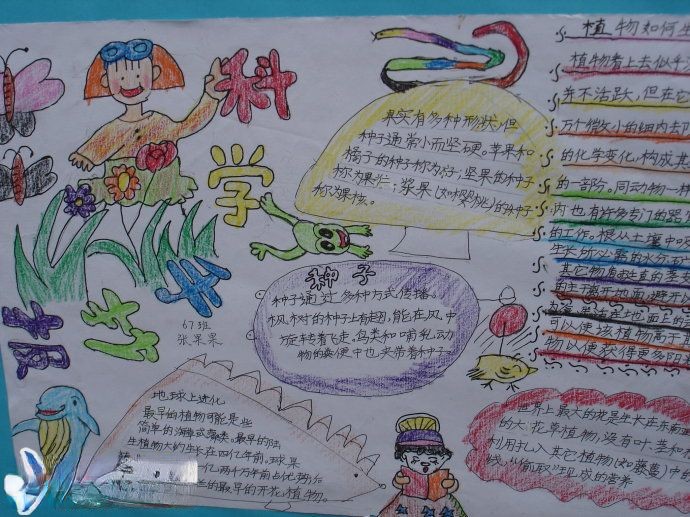 科
学
植物如何生
植物看上去似乎
并不活跃，但在它
万个微小的细内去
的化学变化，构成其
的一部份。同动物一样
内也有许多专门的器
的工作。根从土壤中吸
生长所必需的水分
其它物质
可以使该植物高于
物以便获得更多阳
果实有多种形状，但
种子通常小而坚硬。苹果和
橘子的种子称为籽；坚果的种子
称为果仁；浆果（如樱桃）的种子
称为果核。
种子
种子通过多种方式传播。
枫树的种子上有翅，能在风中
旋转着飞走。鸟类和哺乳动
物的粪便中也夹带着种子
67班
张果果
地球上进化
最早的植物可能是些
简单的海藻或藓类。最早的陆
生植物大约生长在四亿年前。
的最早的开花植物。
世界上最大的花是生长在东南亚
的大花草植物，没有叶、茎和
利用扎入其它植物（如藤蔓）中的
线，"偷取"现成的营养